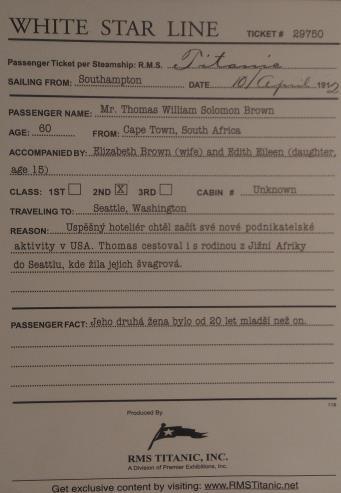 WHITE STAR LINE TICKET # 29750
Passenger Ticket per Steamship: R.M.S. Titanic
SAILING FROM: Southampton DATE 10/April 1912
PASSENGER NAME: Mr. Thomas William Solomon Brown
AGE: 60 FROM: Cape Town, South Africa
ACCOMPANIED BY: Elizabeth Brown (wife) and Edith Eileen (daughter,
age 15)
CLASS: 1ST 2ND X 3RD CABIN # Unknown
TRAVELING TO: Seattle, Washington
REASON: Uspěšný hoteliér chtěl začít své nové podnikatelské
aktivity v USA. Thomas cestoval i s rodinou z Jižní Afriky
do Seattlu, kde žila jejich švagrová.
PASSENGER FACT: Jeho druhá žena bylo od 20 let mladší než on.
Produced By
RMS TITANIC, INC.
A Division of Premier Exhibitions, Inc.
Get exclusive content by visiting: www.RMSTitanic.net